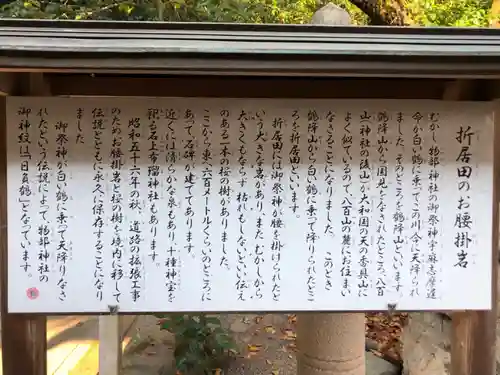 折居田のお腰掛岩
むかし、物部神社の御祭神宇麻志摩遅
命が白い鶴に乗ってこの川合に天降られ
ました。そのところを鶴降山といいます。
鶴降山から国見をなされたところ、八百
山（神社の後山）が大和国の天の香具山に
よく似ているので、八百山の麓にお住まい
なさることになりました。このとき、
鶴降山から白い鶴に乗って降りられたとこ
ろを折居田といいます。
折居田には御祭神が腰を掛けられたと
いう大きな岩があり、また、むかしから
大きくもならず枯れもしないといい伝え
のある一本の桜の樹がありました。
ここから東へ六百メートルくらいのところに
あって、石碑が建ててあります。
近くには清らかな泉もあり、十種神宝を
祀る石上布瑠神社もあります。
昭和五十六年の秋、道路の拡張工事
のためお腰掛岩と桜の樹を境内に移して
伝説とともに永久に保存することになり
ました。
御祭神が白い鶴に乗って天降りなさ
れたという伝説によって、物部神社の
御神紋は「日負鶴」となっています。